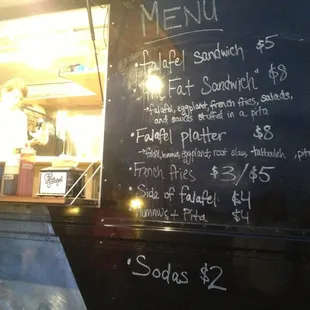 MENU
• falafel sandwich $5
• "The Fat Sandwich" $8
→ falafel, eggplant, french fries, salads,
and sauces stuffed in a pita
• Falafel platter $8
→ falafel, hummus, eggplant, root slaw, tabbouleh, pita
French fries $3/$5
Side of falafel $4
Hummus + Pita $4
• Sodas $2